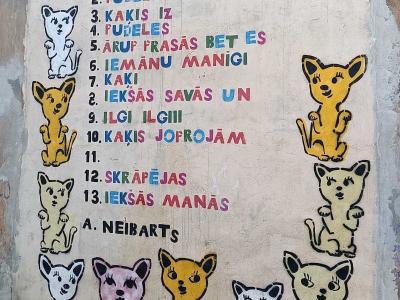 3. KAĶIS IZ
4. PUDELES
5. ĀRUP PRASĀS BET ES
6. IEMĀNU MANĪGI
7. KAĶI
8. IEKŠĀS SAVĀS UN
9. ILGI ILGIII
10. KAĶIS JOPROJĀM
11.
12. SKRĀPĒJAS
13. IEKŠĀS MANĀS
A. NEIBARTS